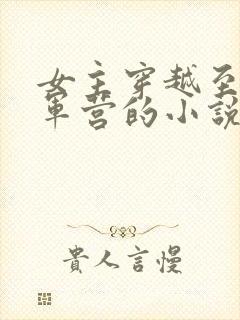 女主穿越至
軍营的小說
貴人言慢